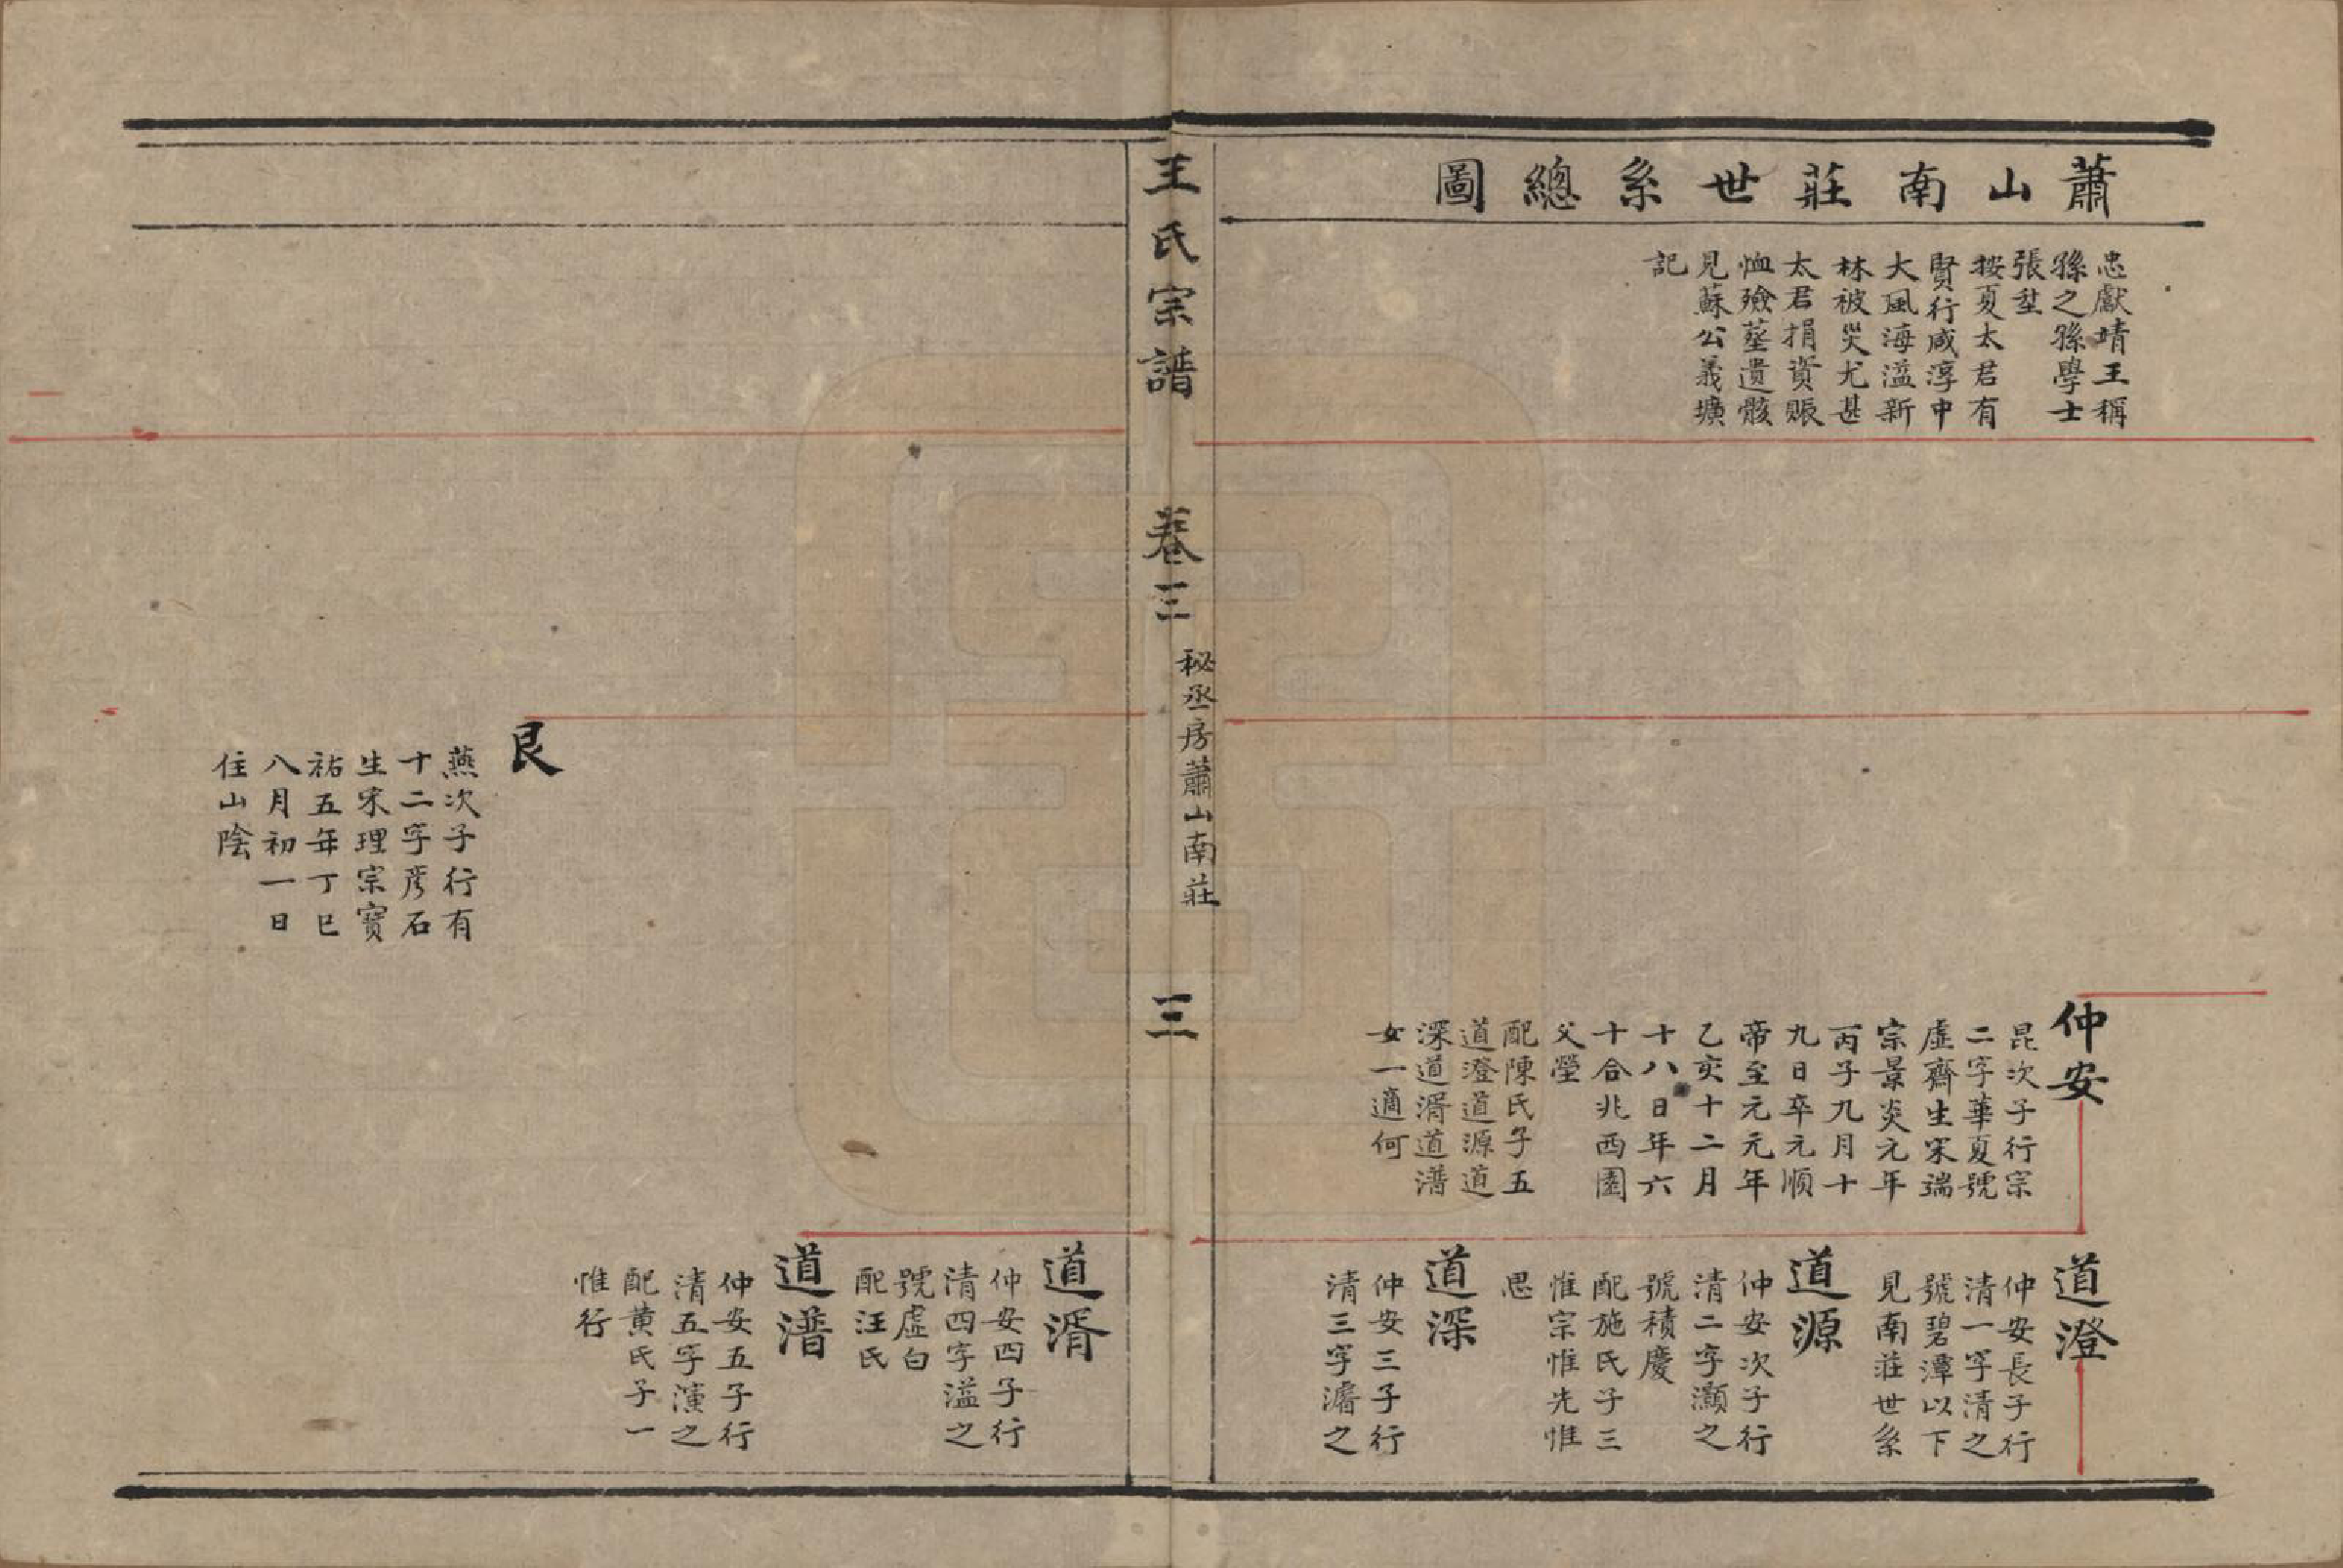 蕭山南莊世系總圖
忠獻靖王稱
孫之孫學士
張壑
按夏太君有
賢行咸淳中
大風海溢新
林被災尤甚
太君捐資賑
恤殮塟遺骸
見蘇公義壙
記
仲安
昆次子行宗
二字華夏號
虛齋生宋端
宗景炎元年
丙子九月十
九日卒元順
帝至元元年
乙亥十二月
十八日年六
十合兆西園
父塋
配陳氏子五
道澄道源道
深道湑道潽
女一適何
道澄
仲安長子行
清一字清之
號碧潭以下
見南莊世系
道源
仲安次子行
清二字灝之
號積慶
配施氏子三
惟宗惟先惟
思
道深
仲安三子行
清三字濬之
王氏宗譜
卷三
秘丞房蕭山南莊
三
道湑
仲安四子行
清四字溢之
號虛白
配汪氏
道潽
仲安五子行
清五字濱之
配黄氏子一
惟行
艮
燕次子行有
十二字彦石
生宋理宗寳
祐五年丁巳
八月初一日
住山陰